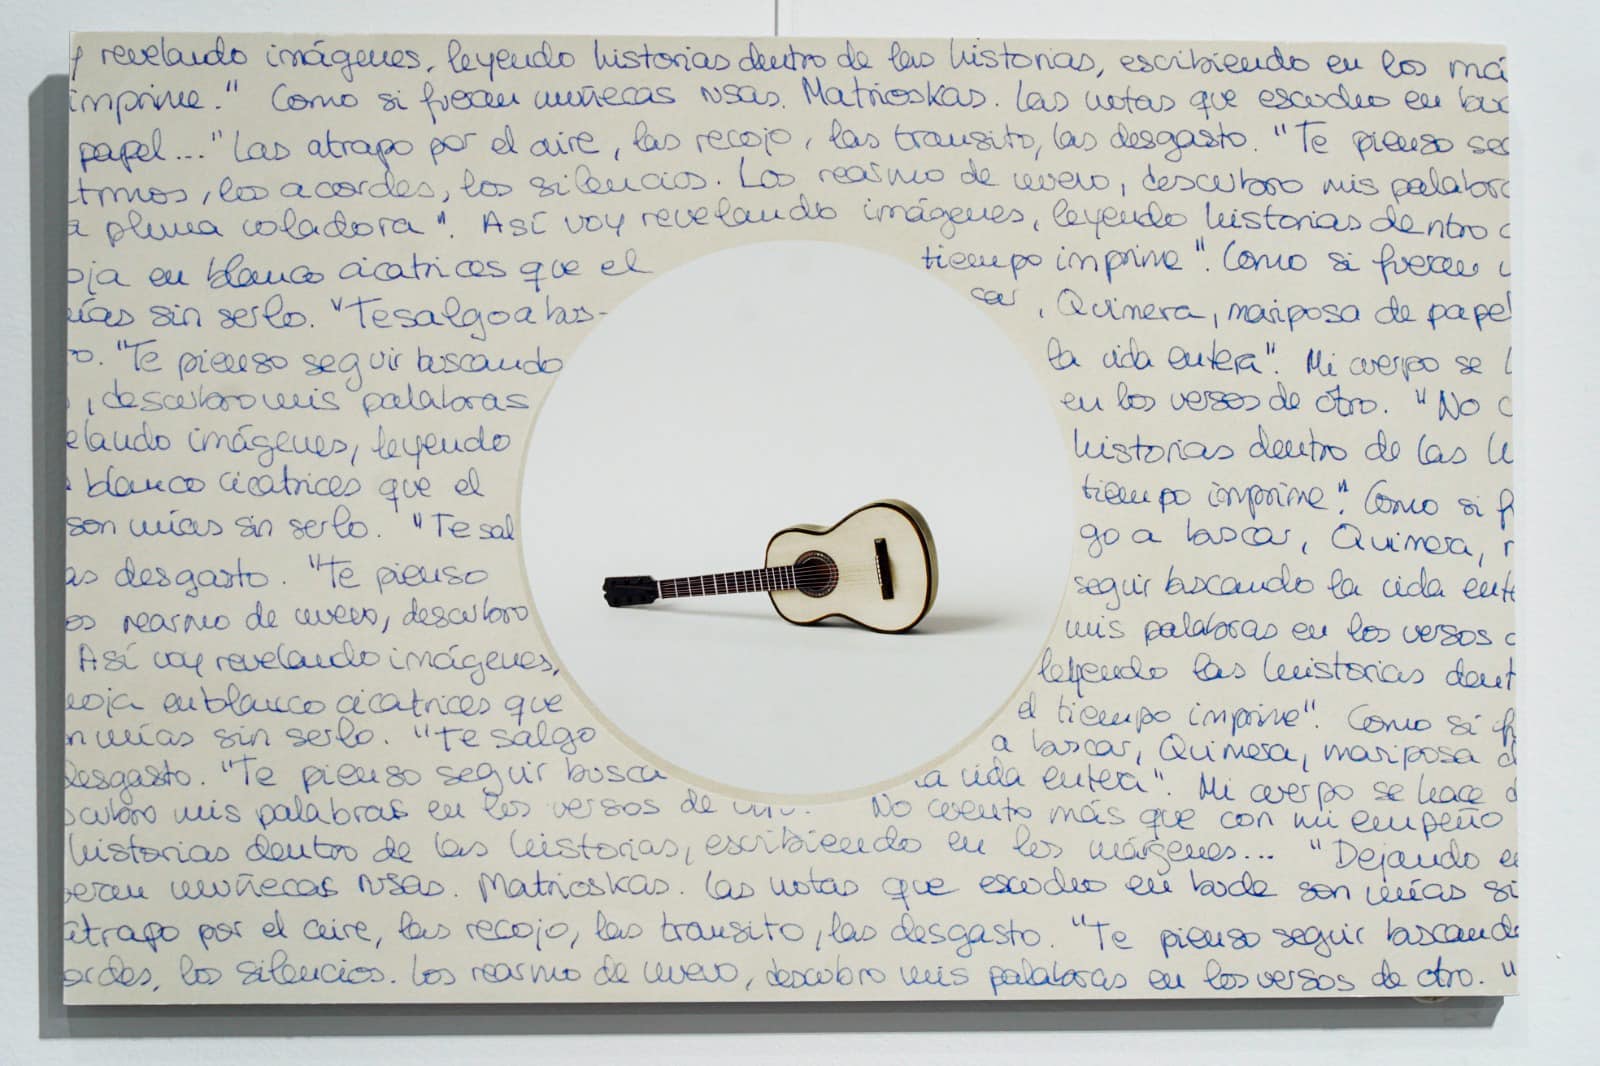 y revelando imágenes, leyendo historias dentro de las historias, escribiendo en los má
imprime." Como si fueran muñecas rusas. Matrioskas. Las notas que escucho en buc
papel..." Las atrapo por el aire, las recojo, las transito, las desgasto. "Te pienso seg
itmos, los acordes, los silencios. Los rearmo de nuevo, descubro mis palabra
a pluma voladora". Así voy revelando imágenes, leyendo historias dentro d
oja en blanco cicatrices que el tiempo imprime". Como si fueran
mías sin serlo. "Te salgo a bus- car, Quimera, mariposa de papel
o. "Te pienso seguir buscando la vida entera". Mi cuerpo se
, descubro mis palabras en los versos de otro. "No c
elando imágenes, leyendo historias dentro de las h
blanco cicatrices que el tiempo imprime". Como si f
son mías sin serlo. "Te sal go a buscar, Quimera, m
as desgasto. "Te pienso seguir buscando la vida ente
os rearmo de nuevo, descubro mis palabras en los versos d
Así voy revelando imágenes, leyendo las historias dent
hoja en blanco cicatrices que el tiempo imprime". Como si f
n mías sin serlo. "Te salgo a buscar, Quimera, mariposa d
desgasto. "Te pienso seguir busca la vida entera". Mi cuerpo se hace d
scubro mis palabras en los versos de No cuento más que con mi empeño
historias dentro de las historias, escribiendo en los márgenes... "Dejando e
eran muñecas rusas. Matrioskas. Las notas que escucho en bucle son mías si
atrapo por el aire, las recojo, las transito, las desgasto. "Te pienso seguir buscando
ordes, los silencios. Los rearmo de nuevo, descubro mis palabras en los versos de otro. "